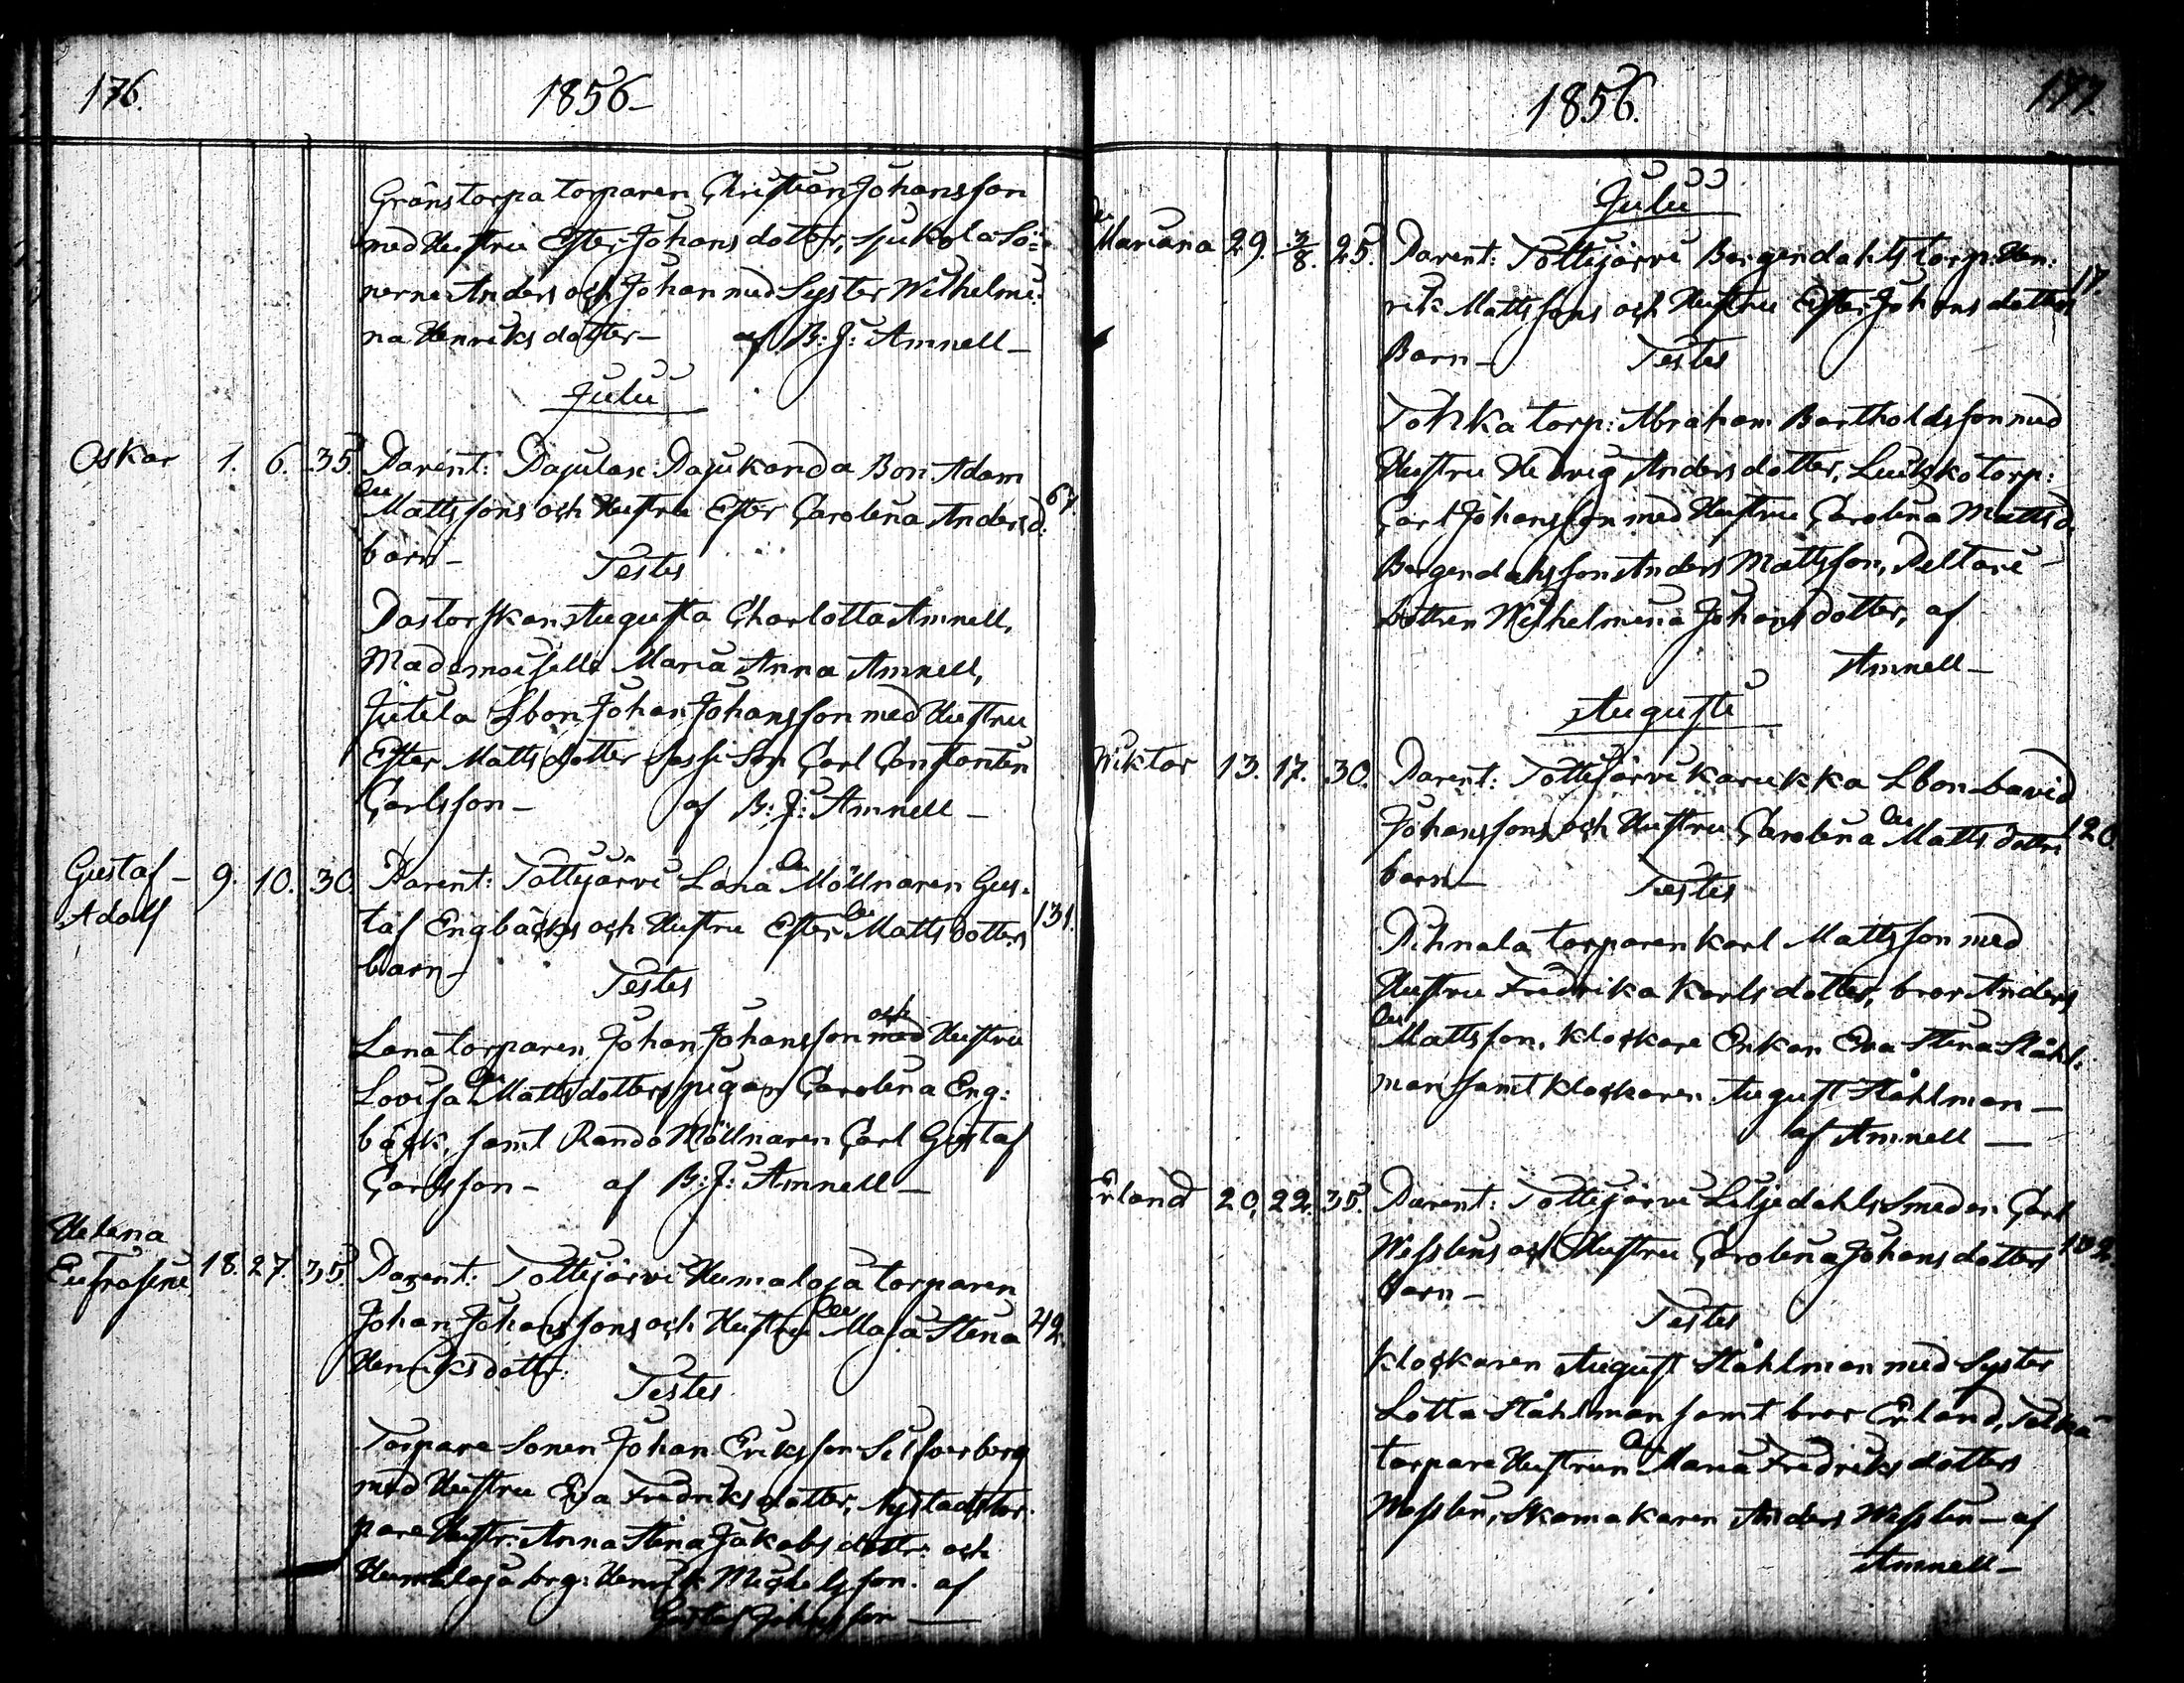 176.
1856-
Gränstorpa torparen Christian Johansson
med Hustru Ester Johansdotter, Sjukola Sö=
nerne Anders och Johan med Syster Wilhelmi:
na Henriksdotter- af B: J: Amnell-
Julii
Oskar 1. 6. 35. Parent: Pajulax: Pajukanda Bon Adam
Mattssons och Hustru Ester Carolina Andersd: 67
barn- Testes
Pastorskan Augusta Charlotta Amnell,
Mademoiselle Maria Anna Amnell,
Jutila Lbon Johan Johansson med Hustru
Ester Mattsdotter Sassi Son Carl Constantin
Carlsson- af B: J: Amnell-
Gustaf- 9. 10. 30. Parent: Tottijärvi Lana Möllnaren Gus:
Adolf taf Engbäcks och Hustru Ester Mattsdotters 131.
barn- Testes
Lana torparen Johan Johansson och Hustru
Lovisa Mattsdotters pigan Carolina Eng:
bäck, samt Rando Möllnaren Carl Gustaf
Carlsson- af B: J: Amnell-
Helena
Eufrosine 18. 27. 35. Parent: Tottijärvi Humaloja torparen
Johan Johanssons och Hustru Maja Stina 42.
Henriksdottr: Testes
Torpare Sonen Johan Eriksson Silfverberg
med Hustru Eva Fredriksdotter, Nystadstor:
pare Hustr: Anna Stina Jakobsdottr: och
Humaloja drg: Henrik Michelsson. af
Gustaf Johansson-
1856.
177.
Julii
Mariana 29. 3/8. 25. Parent: Tottijärvi Bergendahls torp: Hen:
rik Mattssons och Hustru Ester Johansdotters 17.
Barn- Testes
Tohka torp: Abraham Bartholdsson med
Hustru Hedvig Andersdotter, Luikko torp:
Carl Johansson med Hustru Carolina Mattsd:
Bergendahls son Anders Mattsson, Peltari
Dottren Wilhelmina Johansdotter, af
Amnell-
Augusti
Wiktor 13. 17. 30. Parent: Tottijärvi Karukka Lbon David
Johanssons och Hustru Carolina Mattsdotters 120.
barn- Testes
Pihnala torparen Karl Mattsson med
Hustru Fredrika Karlsdotter, bror Anders
Mattsson, Klockare Enkan Eva Stina Ståhl:
man samt Klockaren August Ståhlman-
af Amnell-
Erland 20. 22. 35. Parent: Tottijärvi Liljedahls Smeden Carl
Wesslins och Hustru Carolina Johansdotters 102.
barn- Testes
Klockaren August Ståhlman med Syster
Lotta Ståhlman samt bror Erland, Tohka
torpare Hustrun Maria Fredriksdotters
Wesslin, Skomakaren Anders Wesslin- af
Amnell-